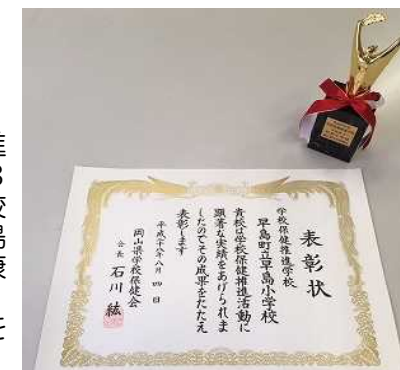 表彰状
学校保健推進学校
早島町立早島小学校
貴校は学校保健推進活動に
顕著な実績をあげられま
したのでその成果をたたえ
表彰します
平成二十八年八月四日
岡山県学校保健会
会長 石川 紘